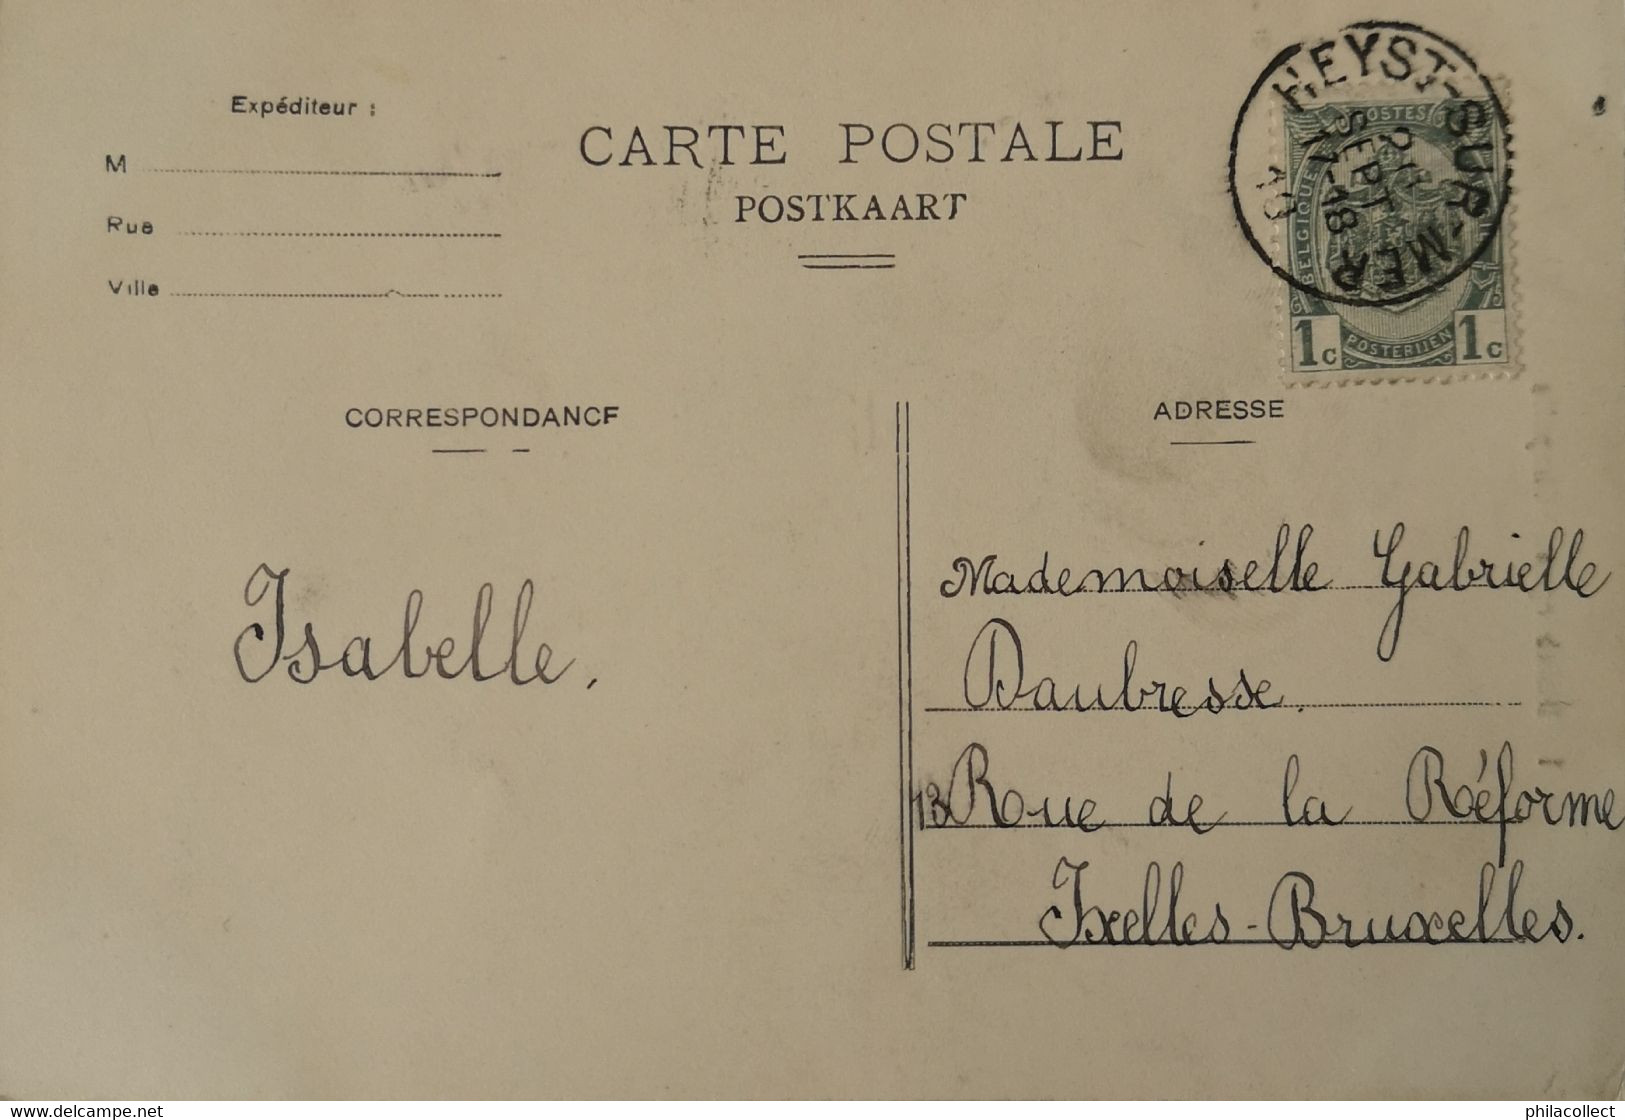 Expéditeur :
M
Rue
Ville
CARTE POSTALE
POSTKAART
HEYST-SUR-MER
SEPT
17-18
10
POSTES
BELGIQUE
1c 1c
POSTERIJEN
CORRESPONDANCE
ADRESSE
Isabelle.
Mademoiselle Gabrielle
Daubresse.
13 Rue de la Réforme
Ixelles-Bruxelles.
philacollect